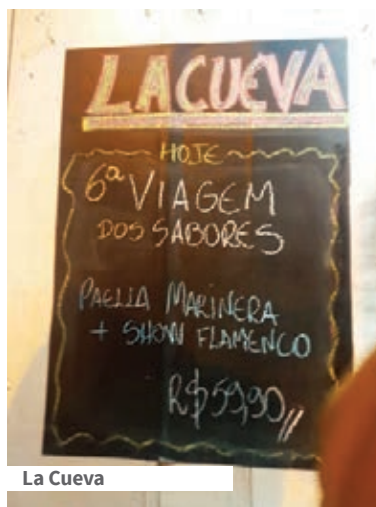 LA CUEVA
HOJE
6ª VIAGEM
DOS SABORES
PAELLA MARINERA
+ SHOW FLAMENCO
R$59,90
La Cueva